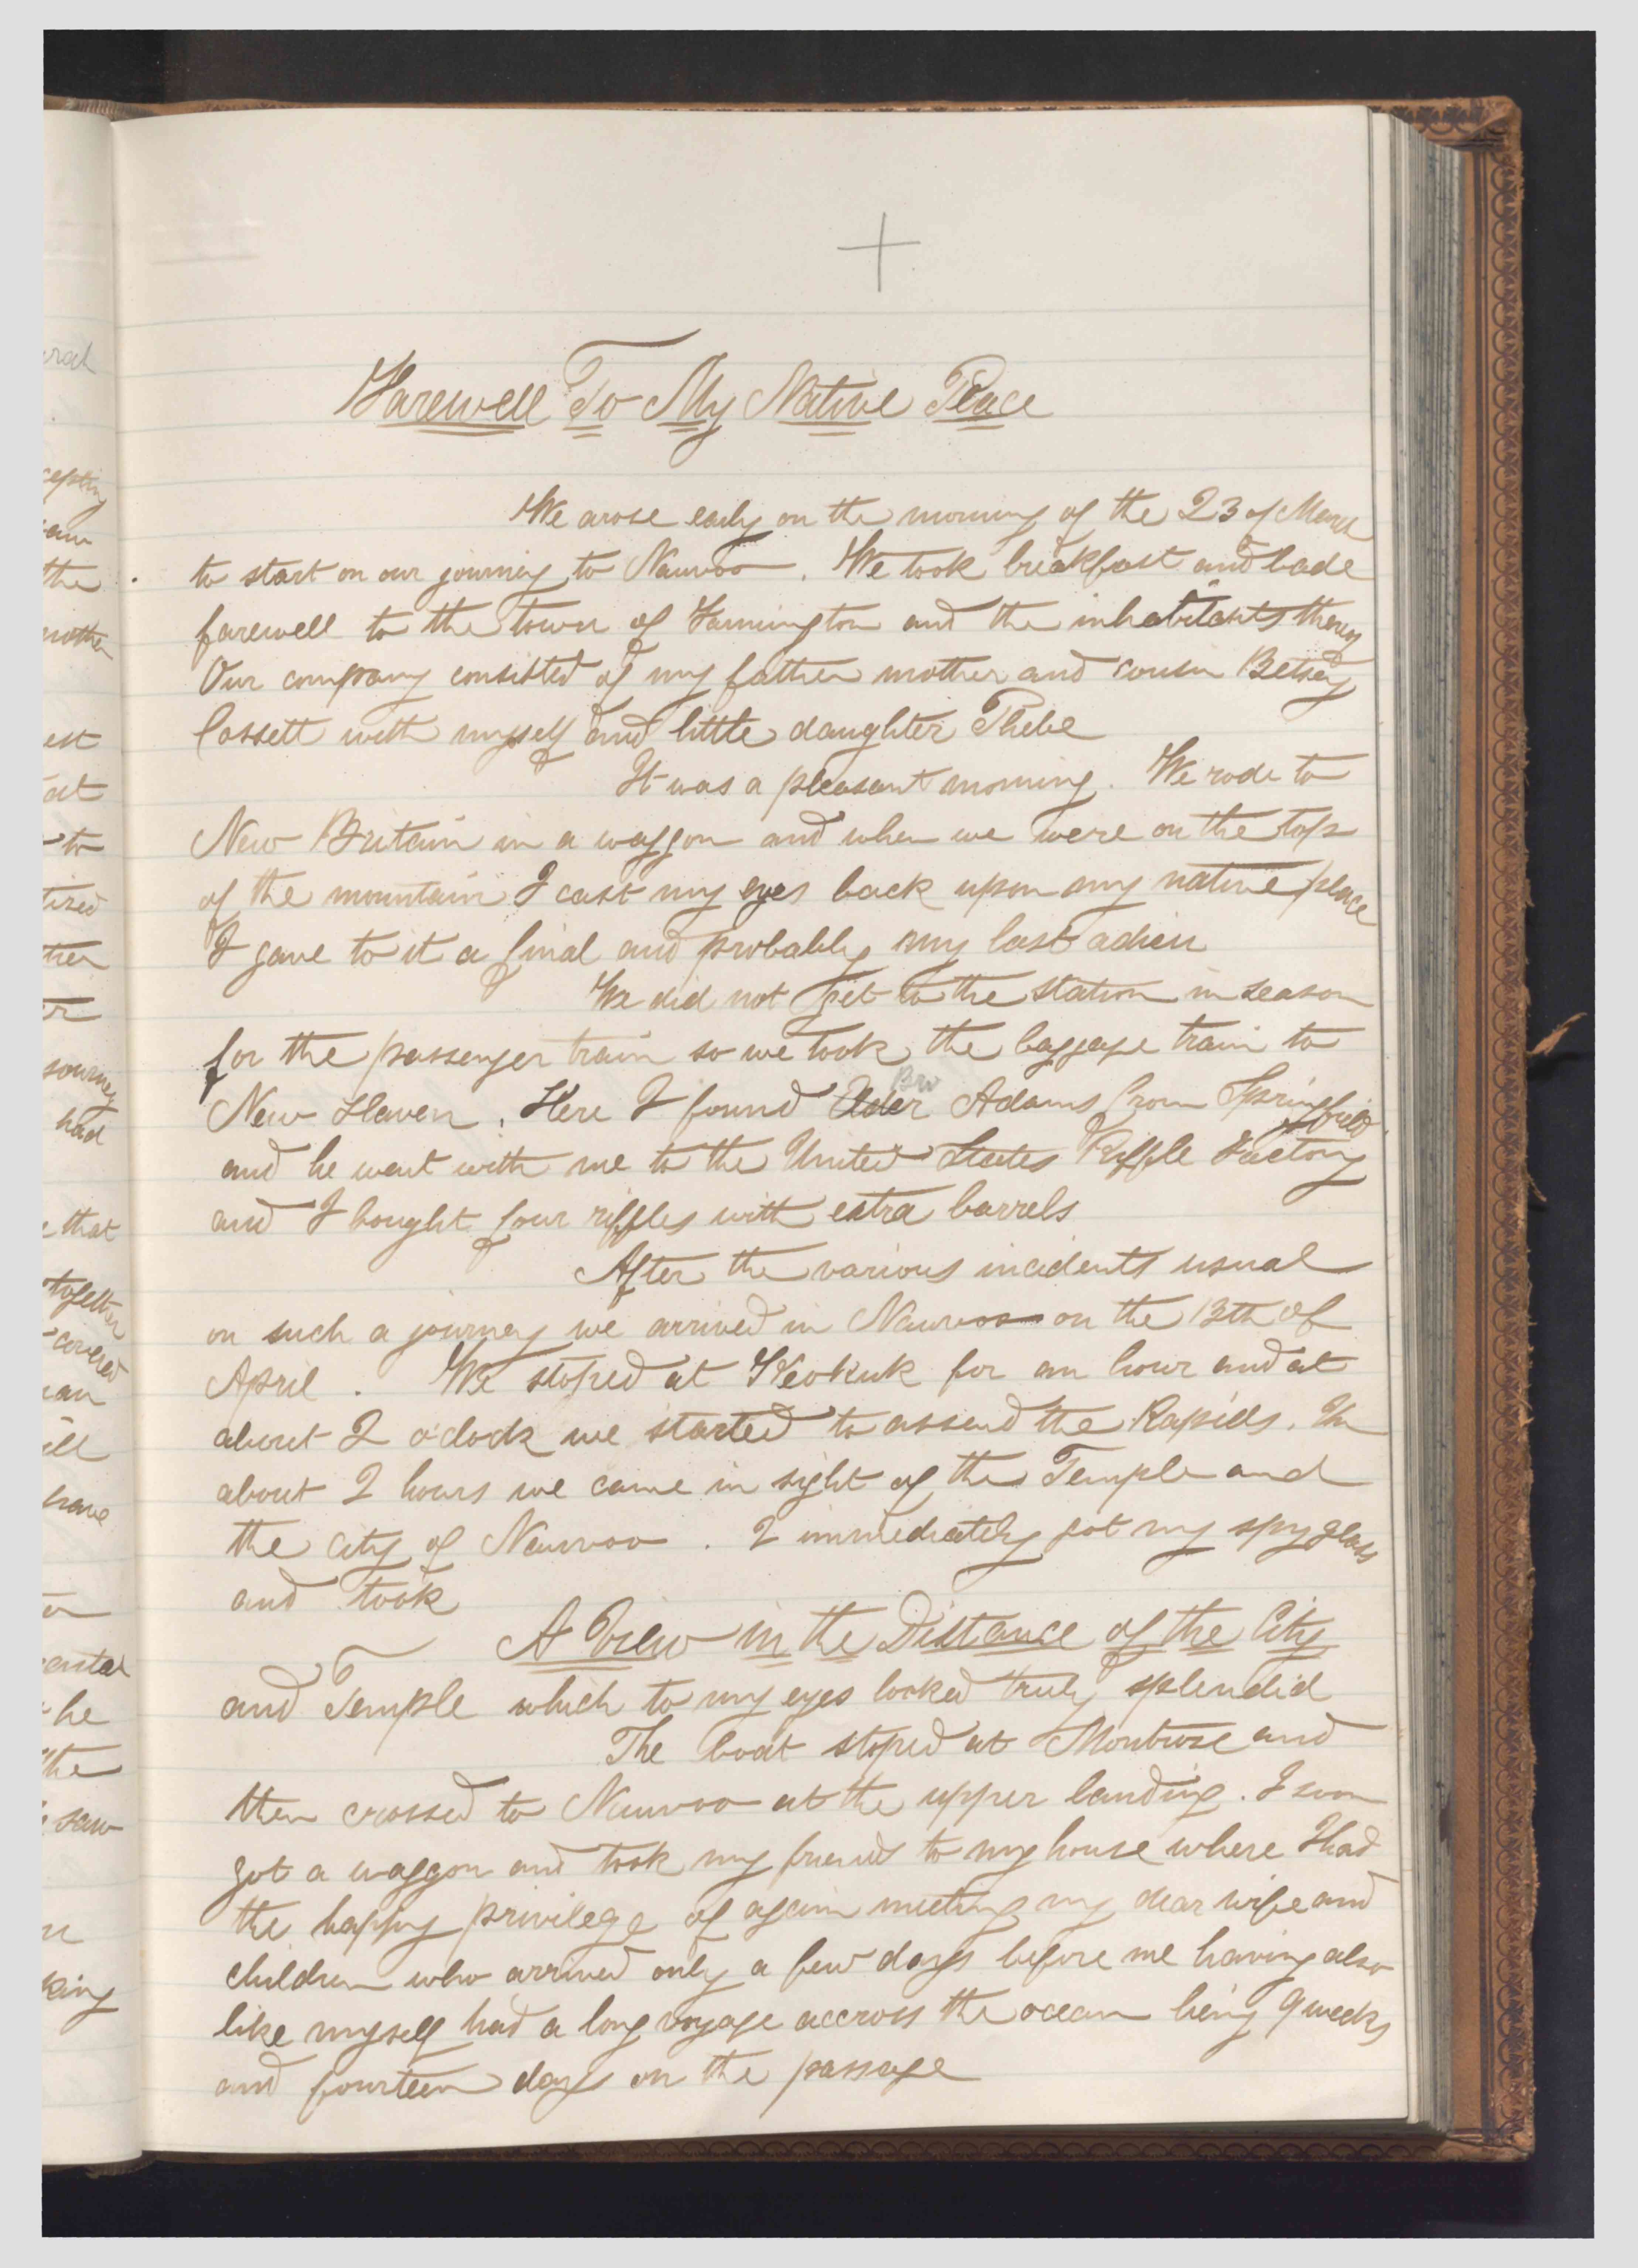 Farewell To My Native Place
We arose early on the morning of the 23 of March
to start on our journey to Nauvoo. We took breakfast and bade
farewell to the town of Farmington and the inhabitants thereof
Our company consisted of my father mother and cousin Betsey
Cossett with myself and little daughter Phebe
It was a pleasant morning. We rode to
New Britain in a waggon and when we were on the top
of the mountain I cast my eyes back upon my native place
I gave to it a final and probably my last adieu
We did not get to the station in season
for the passenger train so we took the baggage train to
Bro
New Haven. Here I found Elder Adams from Springfield
and he went with me to the United States Riffle Factory
and I bought four riffles with extra barrels
After the various incidents usual
on such a journey we arrived in Nauvoo on the 13th of
April. We stoped at Keokuk for an hour and at
about 2 o'clock we started to assend the Rapids. In
about 2 hours we came in sight of the Temple and
the city of Nauvoo. I immediately got my spy glass
and took
A View in the Distance of the City
and Temple which to my eyes looked truly splendid
The boat stoped at Montrose and
then crossed to Nauvoo at the upper landing. I soon
got a waggon and took my friends to my house where I had
the happy privilege of again meeting my dear wife and
children who arrived only a few days before me having also
like myself had a long voyage accross the ocean being 9 weeks
and fourteen days on the passage